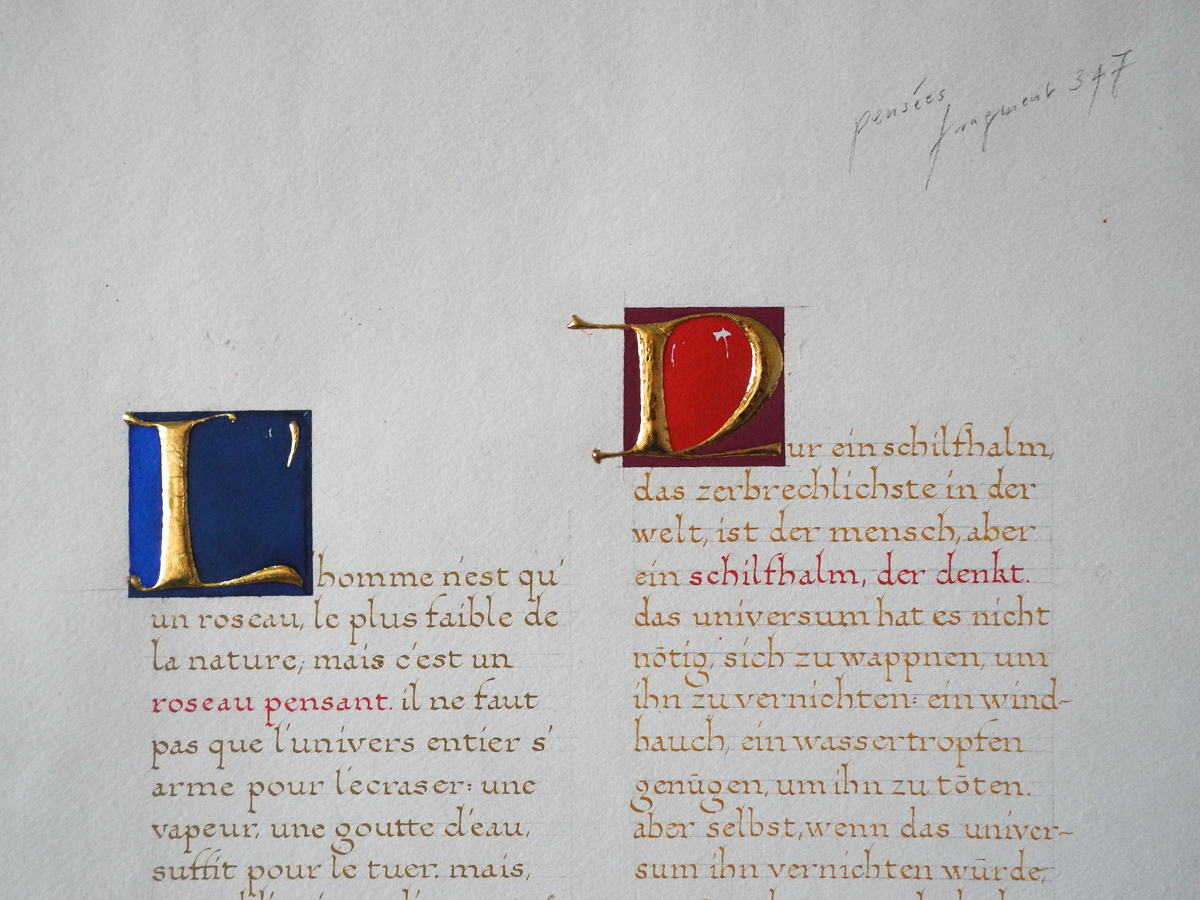 pensées
fragment 347
L'homme n'est qu'
un roseau, le plus faible de
la nature; mais c'est un
roseau pensant. il ne faut
pas que l'univers entier s'
arme pour l'écraser: une
vapeur, une goutte d'eau,
suffit pour le tuer. mais,
Nur ein schilfhalm,
das zerbrechlichste in der
welt, ist der mensch, aber
ein schilfhalm, der denkt.
das universum hat es nicht
nōtig, sich zu wappnen, um
ihn zu vernichten: ein wind-
hauch, ein wassertropfen
genūgen, um ihn zu tōten.
aber selbst, wenn das univer-
sum ihn vernichten wūrde,